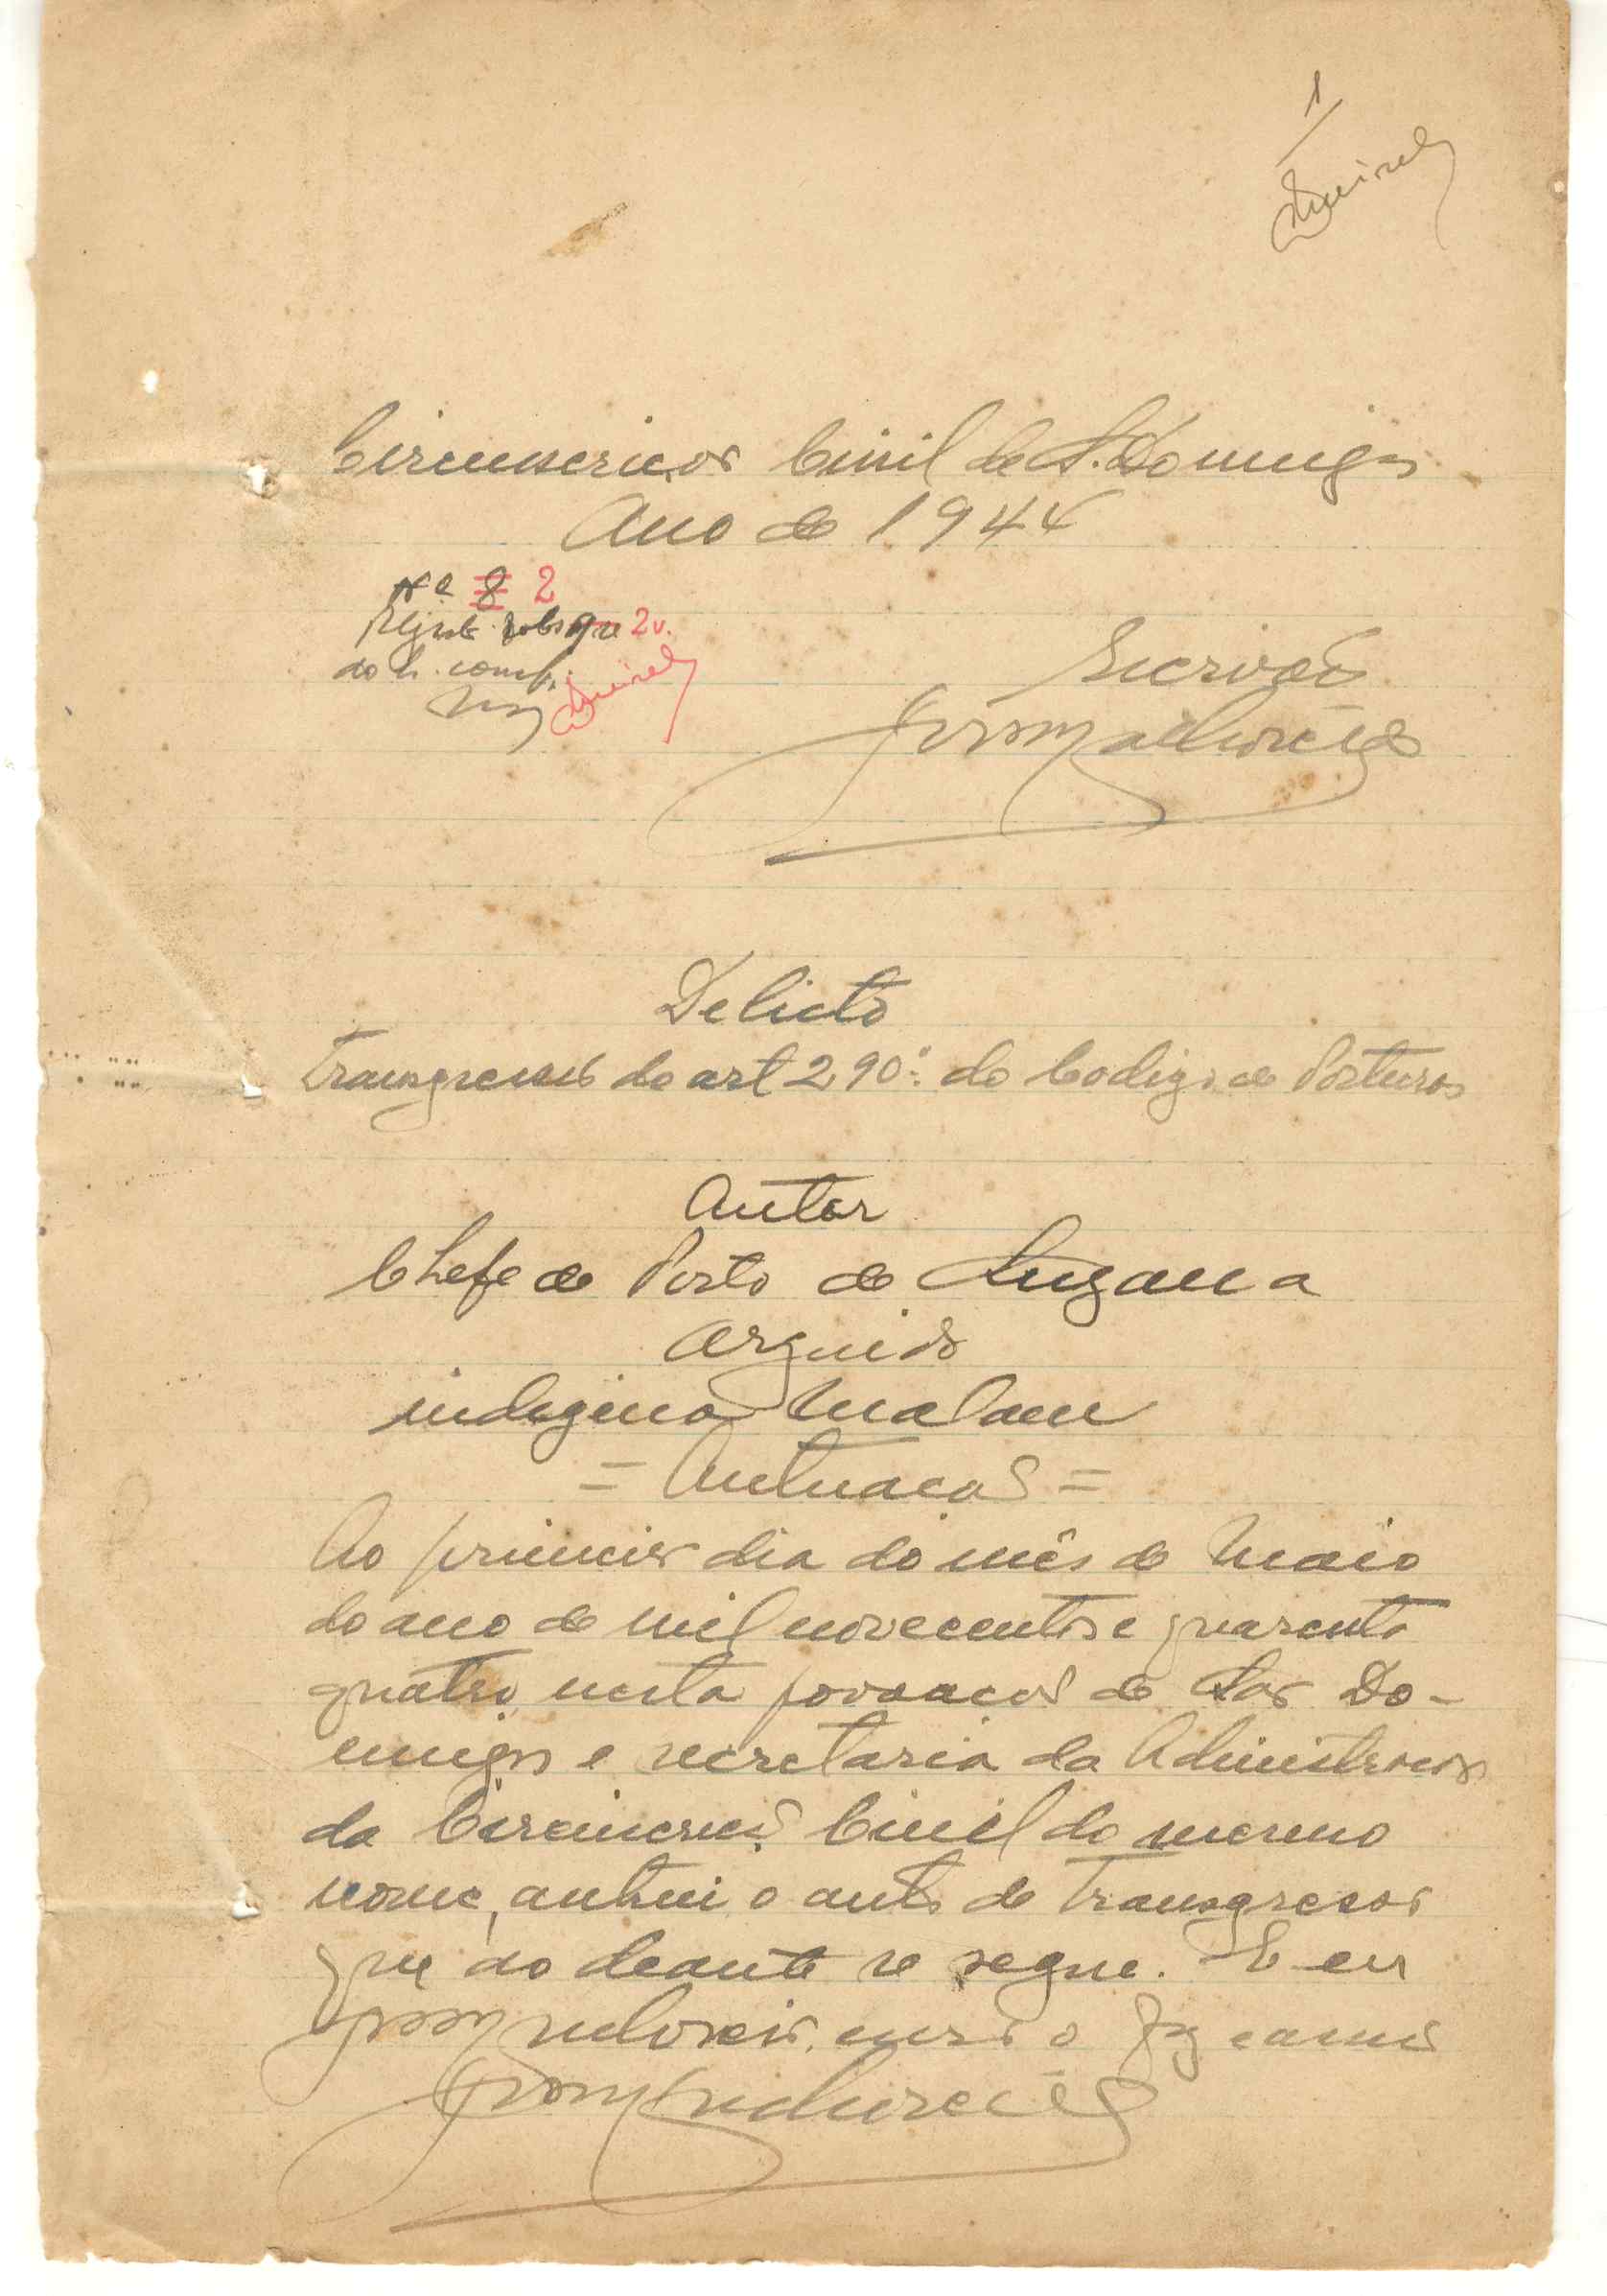 1
Circunscrição Civil de S. Domingos
Ano de 1944
Nº 8 2
2v.
do L. comp.
Escrivão
Delicto
Transgressão do art 290º do Codigo de Posturas
Autor
Chefe de Posto de Suzana
Arguido
indigena Malam
= Autuação =
Ao primeiro dia do mês de Maio
do ano de mil novecentos e quarenta
quatro, nesta povoação de São Do-
mingos e secretaria da Administração
da Circunscrição Civil do mesmo
nome, autuei o auto de Transgressão
que ao deante se segue. E eu